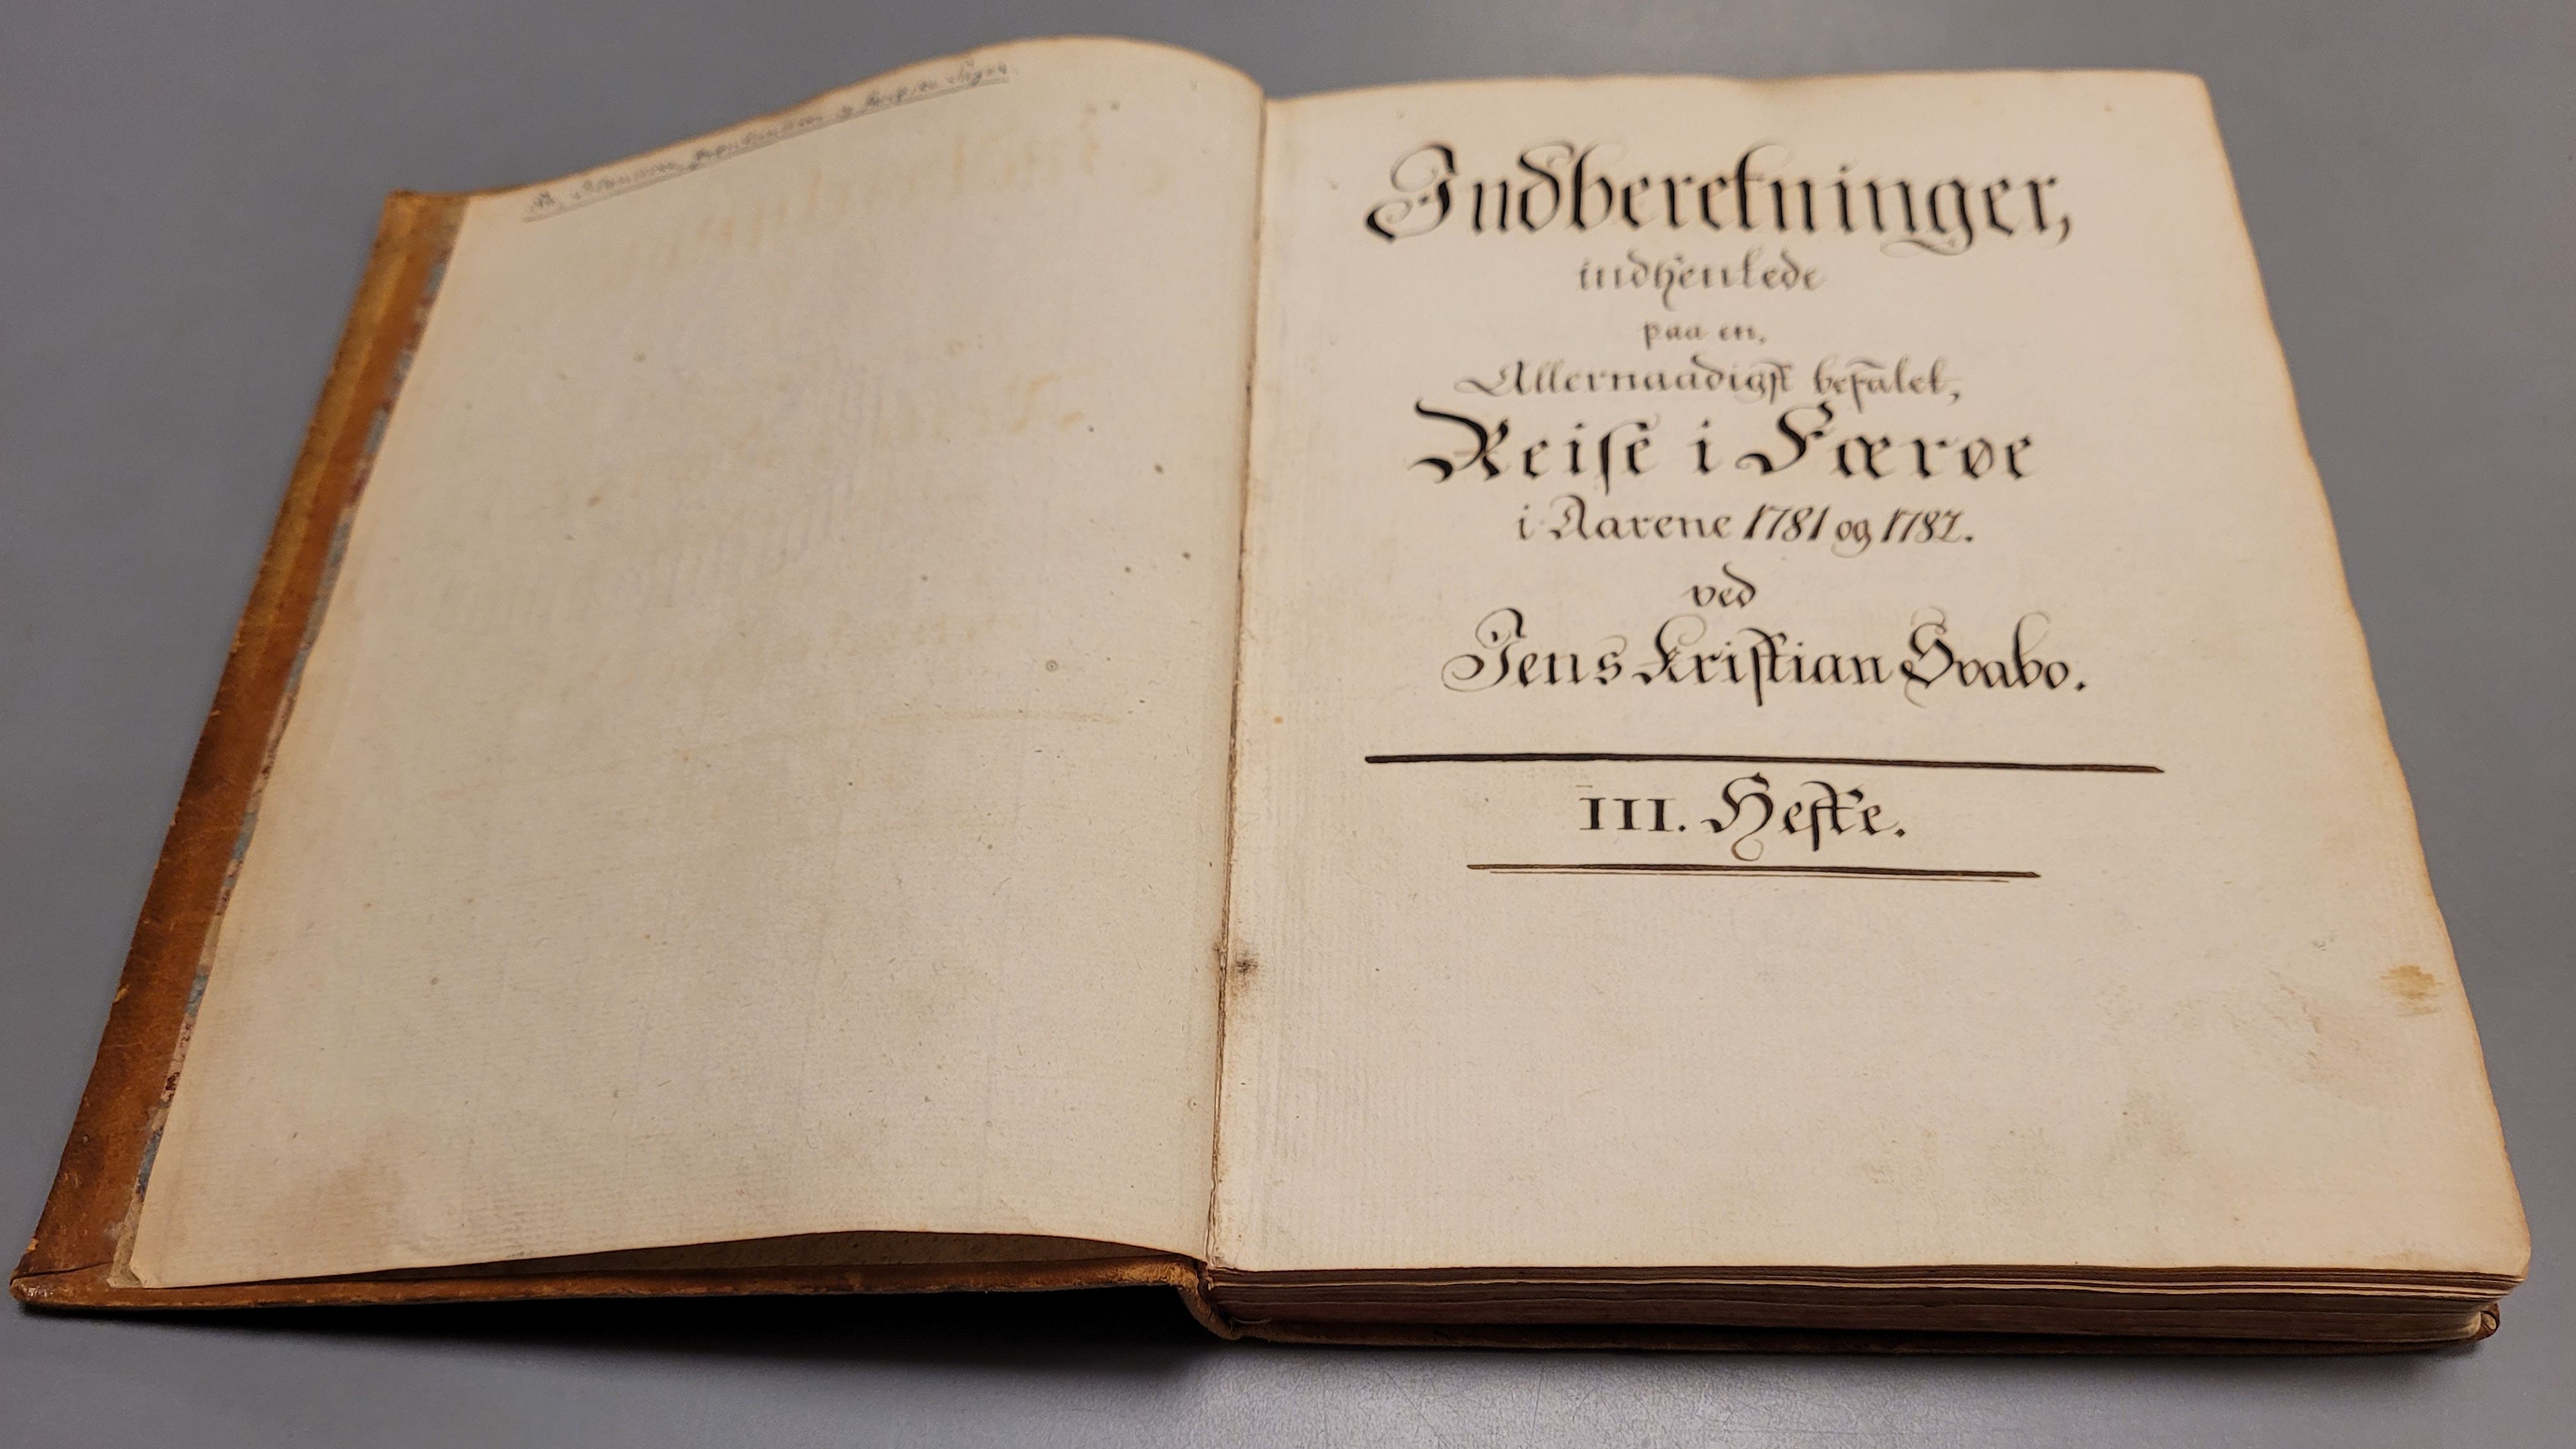 Indberetninger,
indhentede
paa en,
Allernaadigst befalet,
Reise i Færøe
i Aarene 1781 og 1782.
ved
Jens Kristian Svabo.
III. Hefte.